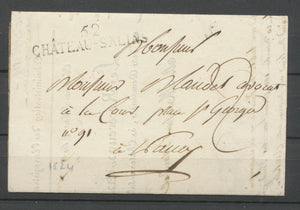 52
CHÂTEAU-SALINS
Monsieur
Monsieur Mandel avocat
à la Cour, place St George
n° 91
à Nancy
1824